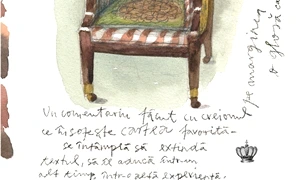 Un comentariu făcut cu creionul
ce însoțește cartea favorită -
se întâmplă să extindă
textul, să se aducă într-un
alt timp, într-o altă experiență.
pe marginea
o glosă ca